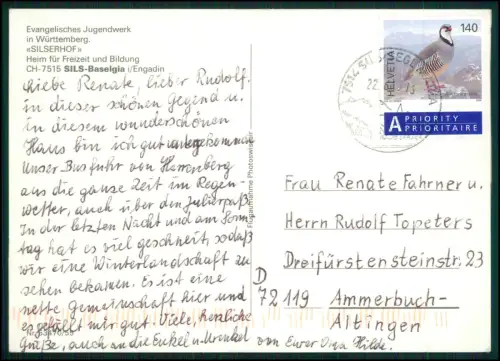 Evangelisches Jugendwerk
in Württemberg.
«SILSERHOF»
Heim für Freizeit und Bildung
CH-7515 SILS-Baselgia i/Engadin
Liebe Renate, lieber Rudolf.
in dieser schönen Gegend u.
in diesem wunderschönen
Haus bin ich gut untergekommen
Unser Bus fuhr von Herrenberg
aus die ganze Zeit im Regen-
wetter, auch über den Julierpaß.
In der letzten Nacht und am Sonn
tag hat es viel geschneit, sodaß
wir eine Winterlandschaft zu
sehen bekamen. Es ist eine
nette Gemeinschaft hier und
es gefällt mir gut. Viele, herzliche
Grüße, auch an die Enkel u. Urenkel
von Eurer Hilde.
140
HELVETIA
A PRIORITY
PRIORITAIRE
7514 SILS
22.
Frau Renate Fahrner u.
Herrn Rudolf Topeters
Dreifürstensteinstr. 23
D
72119 Ammerbuch-
Altingen